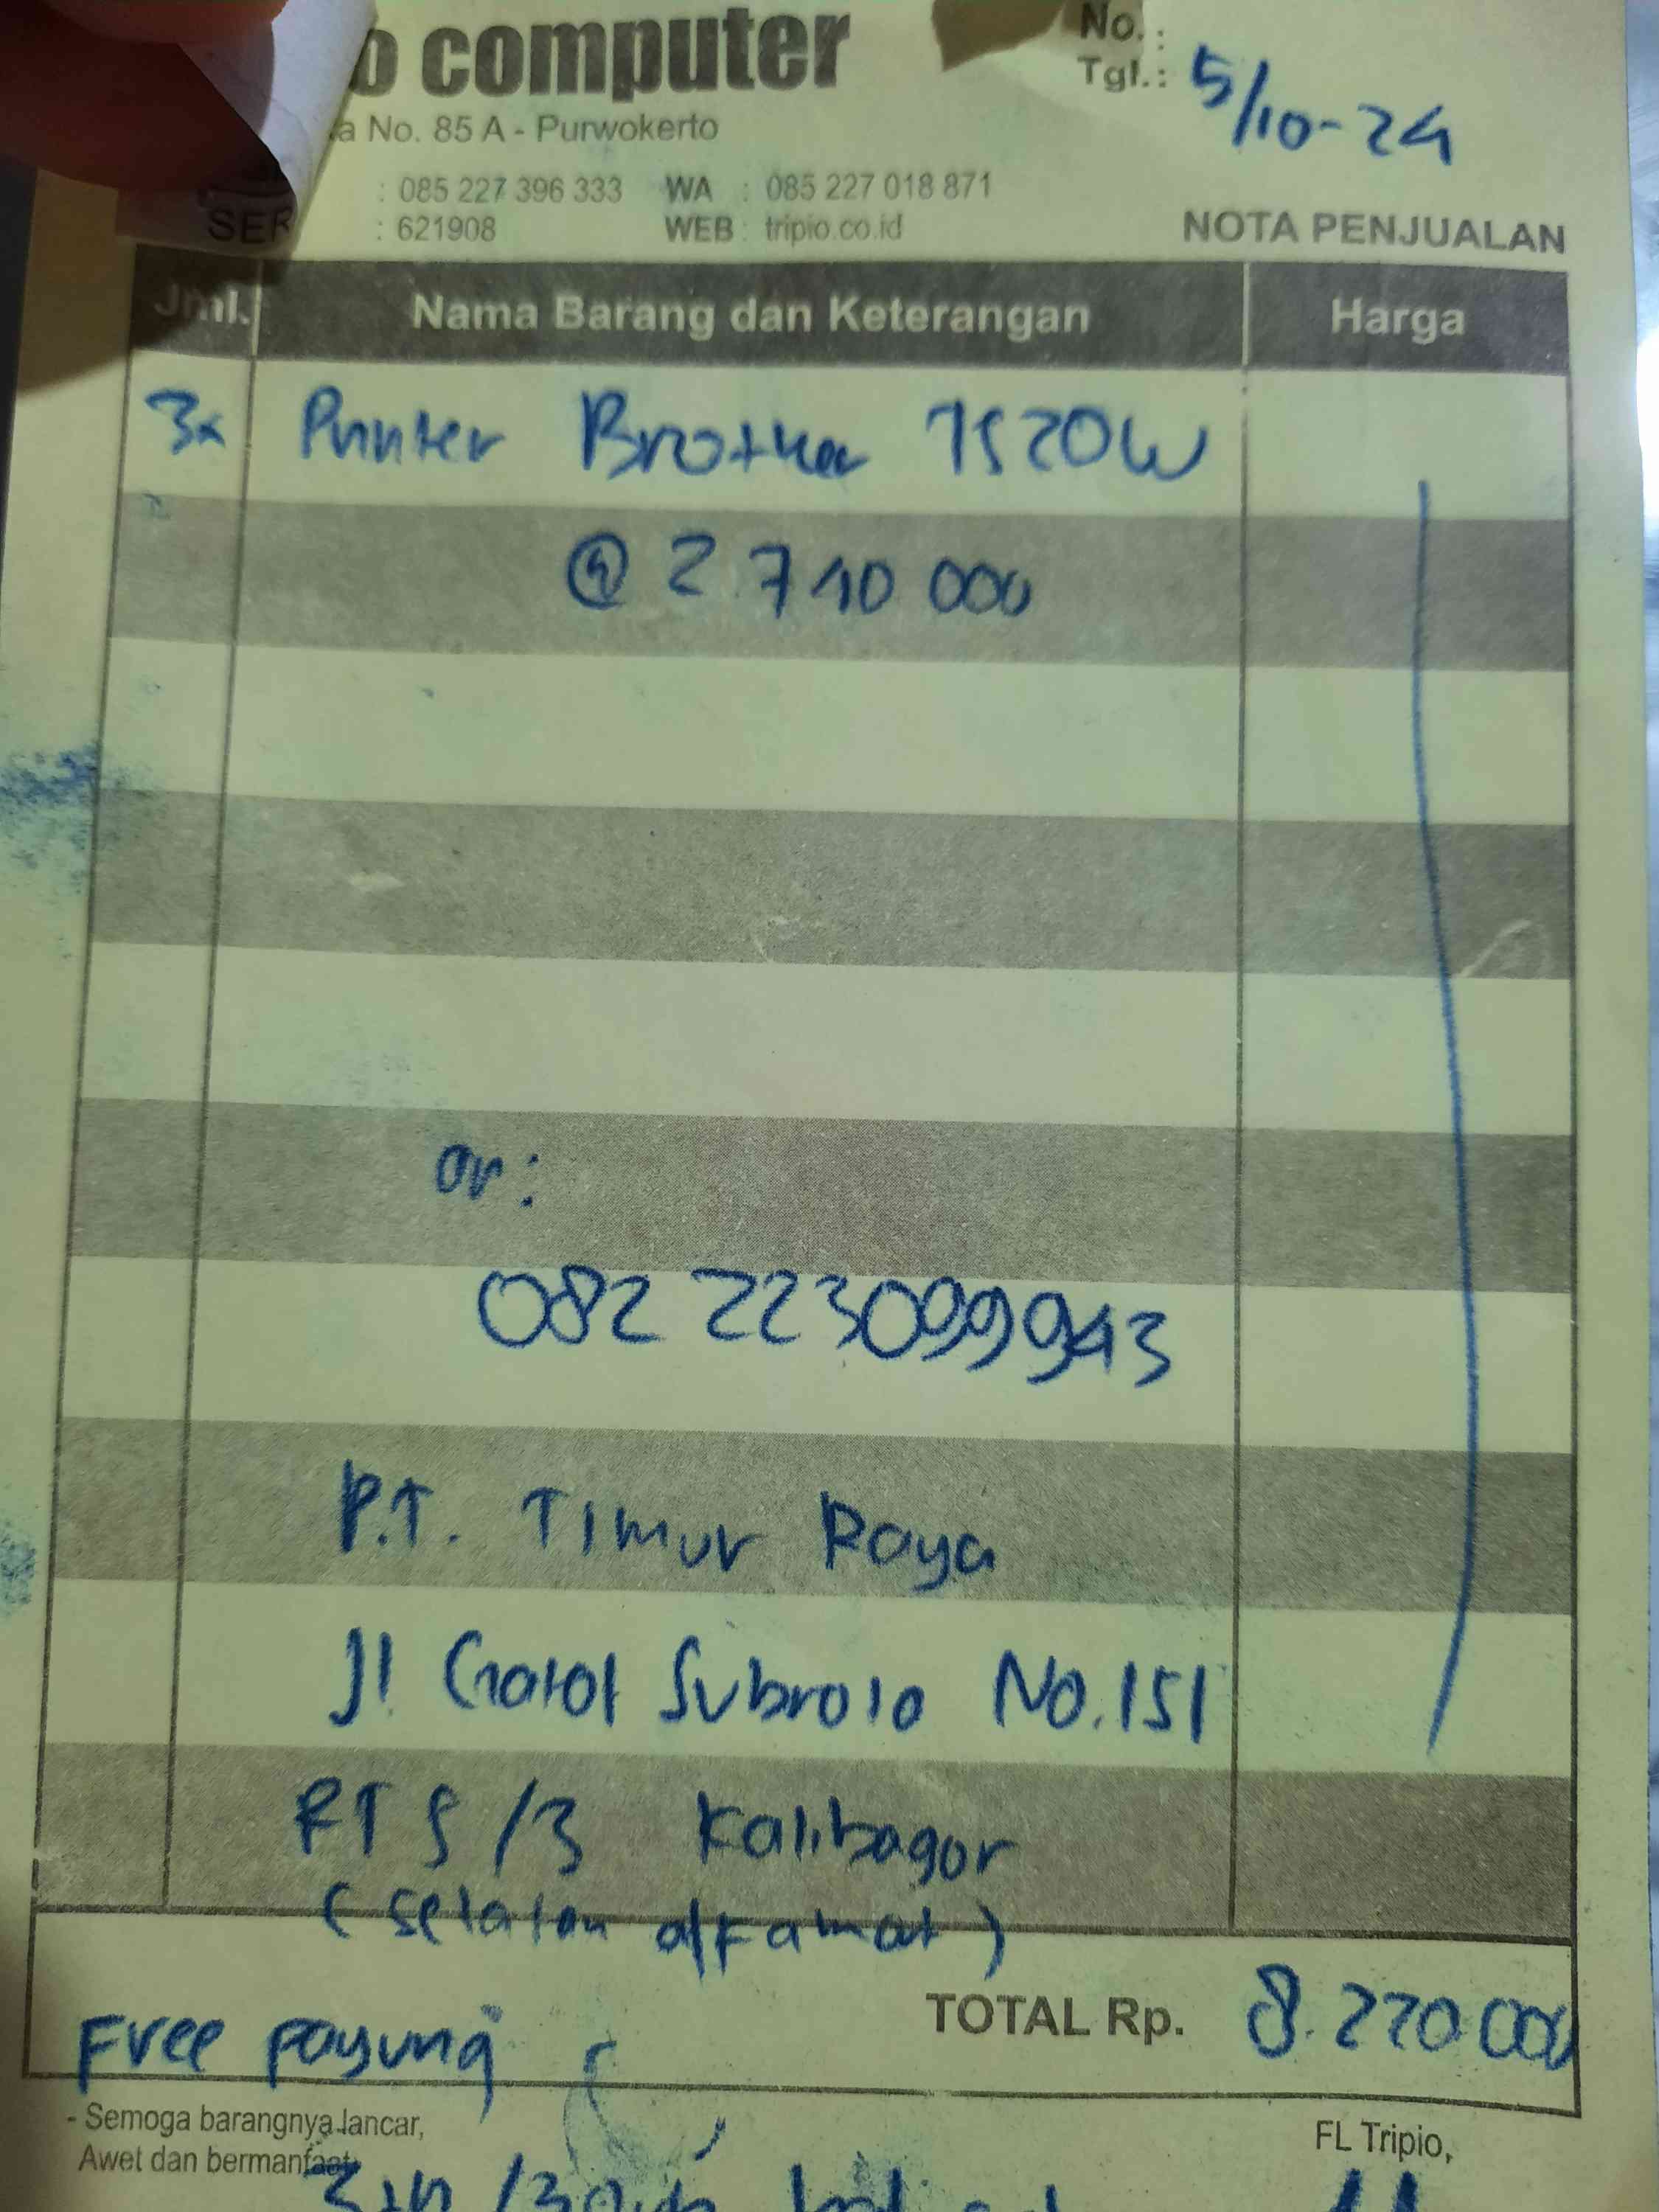 o computer
No. :
Tgl. : 5/10-24
a No. 85 A - Purwokerto
: 085 227 396 333 WA : 085 227 018 871
SER : 621908 WEB : tripio.co.id
NOTA PENJUALAN
Jml. Nama Barang dan Keterangan Harga
3x Printer Brother T520W
@ 2.740 000
an:
082 223099943
P.T. Timur Raya
Jl Gatot Subroto No.151
RT 5/3 Kalibagor
(Selatan alfamart)
TOTAL Rp. 8.220.000
Free payung
- Semoga barangnya lancar,
Awet dan bermanfaat
FL Tripio,